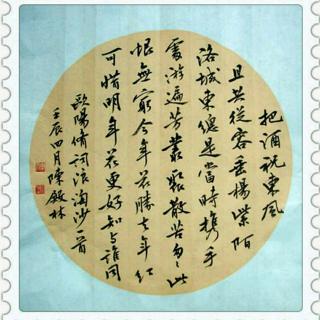 把酒祝東風
且共從容垂楊紫陌
洛城東總是當時携手
處游遍芳叢聚散苦匆々此
恨無窮今年花勝去年紅
可惜明年花更好知與誰同
歐陽脩詞浪淘沙一首
壬辰四月陳林